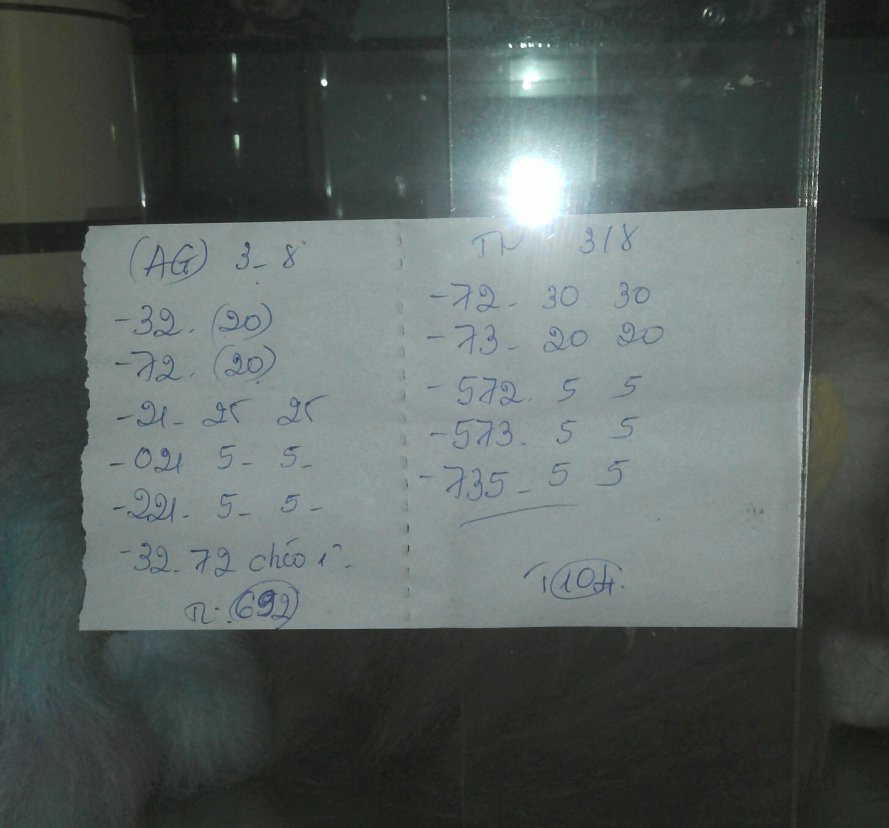 (AG) 3-8
-32. (20)
-72. (20)
-21- 25 25
-021 5- 5-
-221- 5- 5-
-32.72 chéo 1
T: 692
TN 3/8
-72- 30 30
-73- 20 20
-572. 5 5
-573. 5 5
-735- 5 5
T 104.